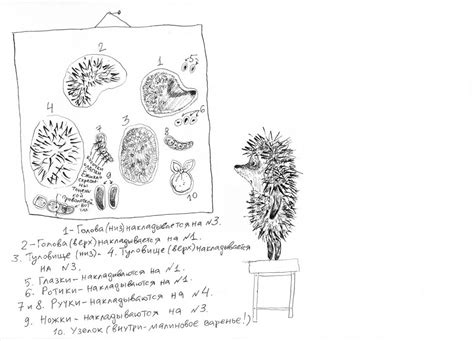 2
1
5
6
4
3
8
9
10
1- Голова (низ) накладывается на №3.
2- Голова (верх) накладывается на №1.
3. Туловище (низ)- 4. Туловище (верх) накладывается
на №3.
5. Глазки- накладываются на №1.
6. Ротики- накладываются на №1.
7 и 8. Ручки- накладываются на №4.
9. Ножки- накладываются на №3.
10. Узелок (внутри- малиновое варенье!)